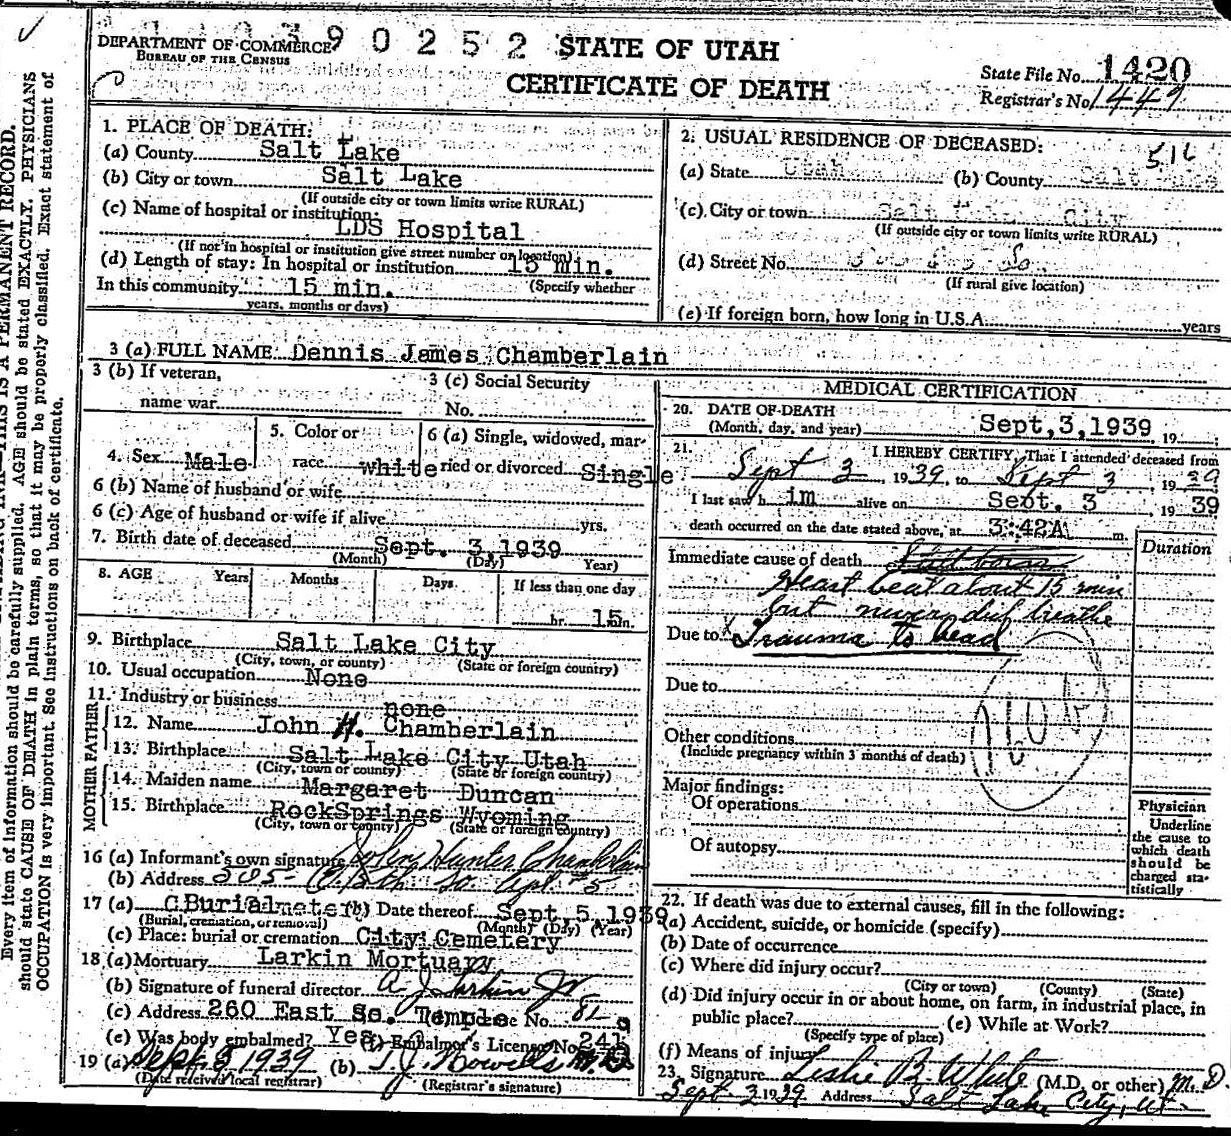 9 0 2 5 2
DEPARTMENT OF COMMERCE
BUREAU OF THE CENSUS
STATE OF UTAH
CERTIFICATE OF DEATH
State File No. 1420
Registrar's No. 1449
1. PLACE OF DEATH:
(a) County Salt Lake
(b) City or town Salt Lake
(If outside city or town limits write RURAL)
(c) Name of hospital or institution:
LDS Hospital
(If not in hospital or institution give street number or location)
(d) Length of stay: In hospital or institution 15 min.
In this community 15 min. (Specify whether
years, months or days)
2. USUAL RESIDENCE OF DECEASED:
(a) State Utah (b) County Salt Lake
(c) City or town Salt Lake City
(If outside city or town limits write RURAL)
(d) Street No. So.
(If rural give location)
(e) If foreign born, how long in U.S.A. years
3 (a) FULL NAME Dennis James Chamberlain
3 (b) If veteran,
name war
3 (c) Social Security
No.
4. Sex Male
5. Color or
race white
6 (a) Single, widowed, mar-
ried or divorced Single
6 (b) Name of husband or wife
6 (c) Age of husband or wife if alive yrs.
7. Birth date of deceased Sept. 3, 1939
(Month) (Day) Year)
8. AGE Years Months Days If less than one day
hr. 15 n.
9. Birthplace Salt Lake City
(City, town, or county) (State or foreign country)
10. Usual occupation None
11. Industry or business none
FATHER
12. Name John H. Chamberlain
13. Birthplace Salt Lake City Utah
(City, town or county) (State or foreign country)
MOTHER
14. Maiden name Margaret Duncan
15. Birthplace RockSprings Wyoming
(City, town or county) (State or foreign country)
16 (a) Informant's own signature John Hunter Chamberlain
(b) Address So. Apt. #5
17 (a) Burial (b) Date thereof Sept, 5, 1939
(Burial, cremation, or removal) (Month) (Day) (Year)
(c) Place: burial or cremation City Cemetery
18 (a) Mortuary Larkin Mortuary
(b) Signature of funeral director A J Larkin Jr
(c) Address 260 East So. Temple No. 81
(e) Was body embalmed? Yes (f) Embalmer's License No. 241
19 (a) Sept. 8, 1939 (b) T. J. Howells M.D.
(Date received local registrar) (Registrar's signature)
MEDICAL CERTIFICATION
20. DATE OF DEATH
(Month, day, and year) Sept, 3, 1939 19
21. I HEREBY CERTIFY, That I attended deceased from
Sept 3, 1939, to Sept 3, 1939
I last saw h im alive on Sept. 3 1939
death occurred on the date stated above, at 3:42A m.
Duration
Immediate cause of death
Heart beat about 15 min
but never did breathe
Due to Trauma to head
Due to
Other conditions
(Include pregnancy within 3 months of death)
Major findings:
Of operations
Of autopsy
Physician
Underline
the cause to
which death
should be
charged sta-
tistically
22. If death was due to external causes, fill in the following:
(a) Accident, suicide, or homicide (specify)
(b) Date of occurrence
(c) Where did injury occur?
(City or town) (County) (State)
(d) Did injury occur in or about home, on farm, in industrial place, in
public place? (e) While at Work?
(Specify type of place)
(f) Means of injury
23. Signature Leslie B. White (M.D. or other) M.D.
Sept 3 1939 Address Salt Lake City, Ut.
Every item of information should be carefully supplied. AGE should be stated EXACTLY. PHYSICIANS
should state CAUSE OF DEATH in plain terms, so that it may be properly classified. Exact statement of
OCCUPATION is very important. See instructions on back of certificate.